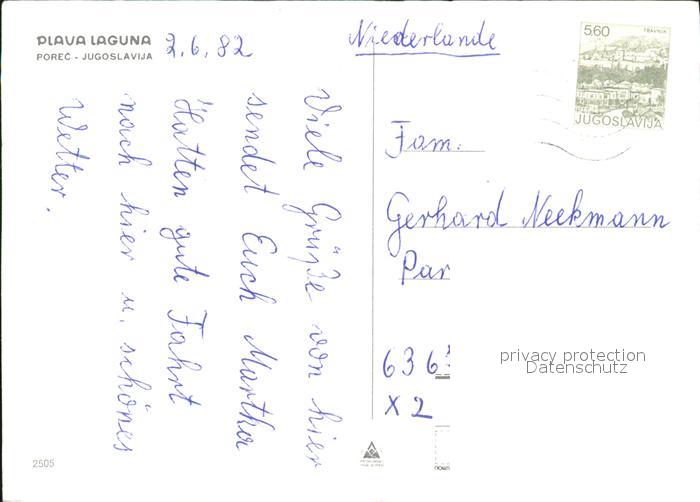 PLAVA LAGUNA
POREČ - JUGOSLAVIJA
2.6.82
Viele Grüße von hier
sendet Euch Martha
Hatten gute Fahrt
nach hier u. schönes
Wetter.
2505
Niederlande
5,60
TRAVNIK
JUGOSLAVIJA
Fam.
Gerhard Neekmann
Par
636
X 2
privacy protection
Datenschutz